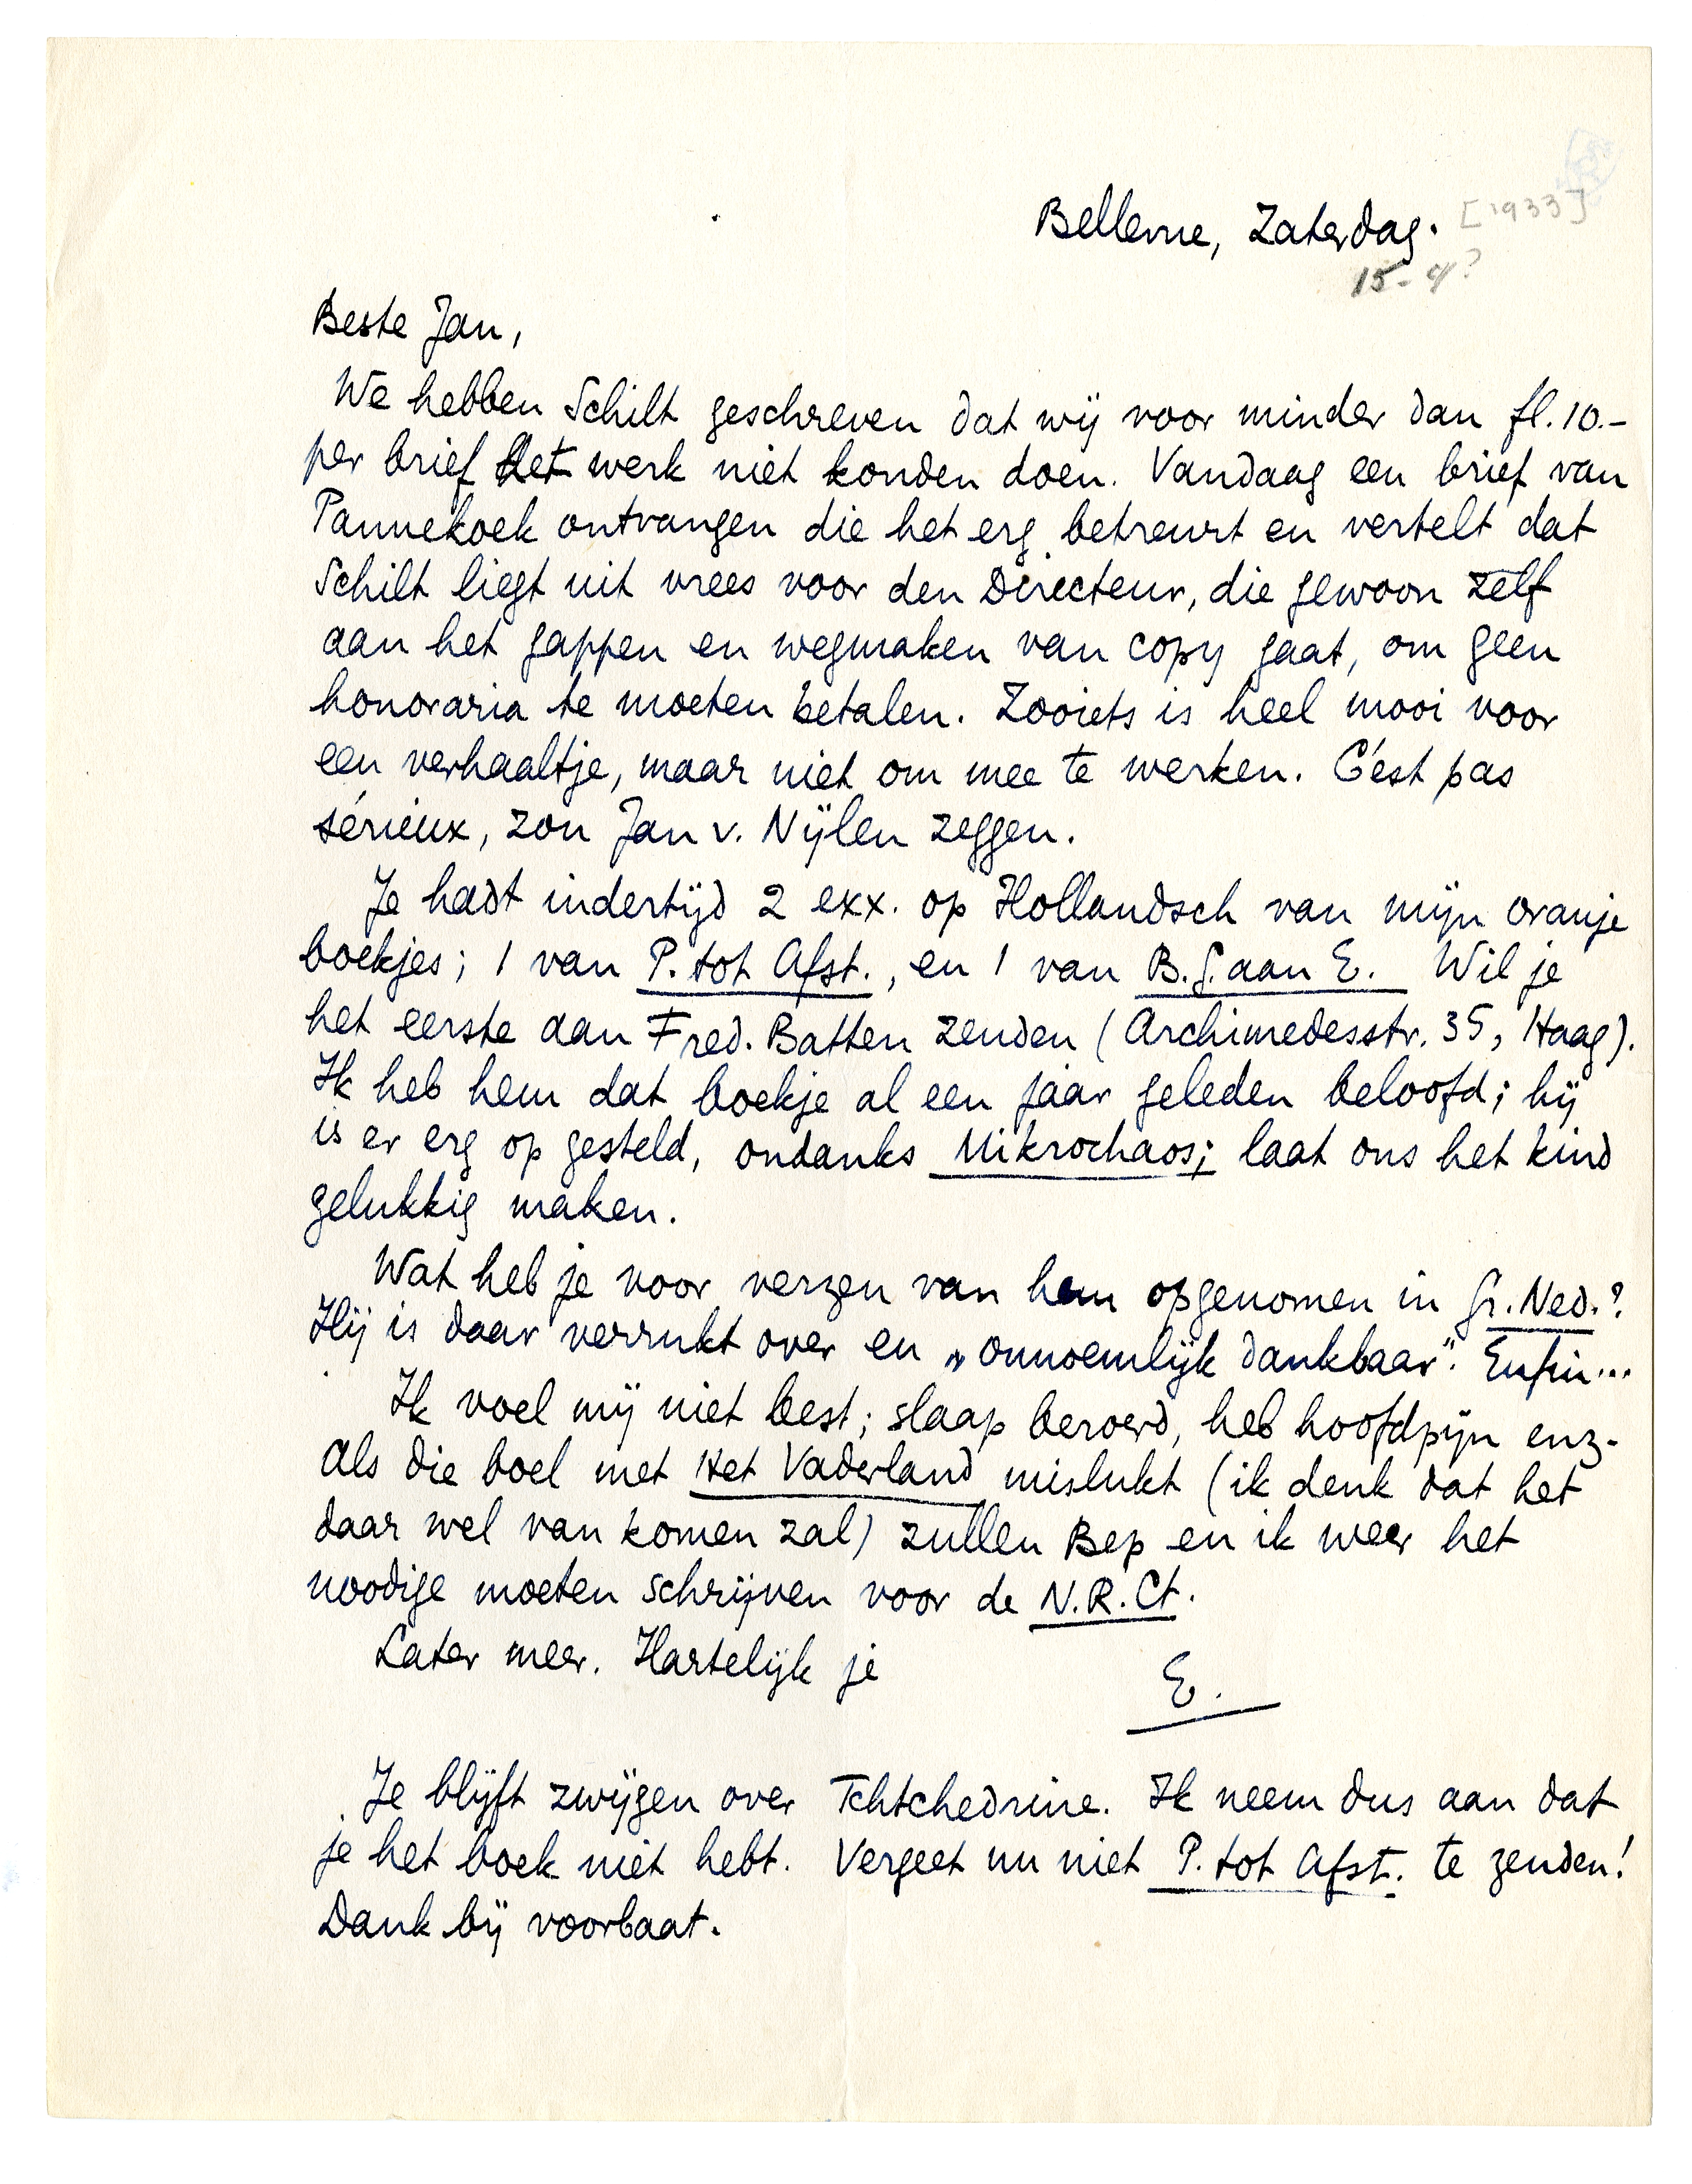 Bellevue, Zaterdag. [1933]
15-4?
Beste Jan,
We hebben Schilt geschreven dat wij voor minder dan fl.10.-
per brief het werk niet konden doen. Vandaag een brief van
Pannekoek ontvangen die het erg betreurt en vertelt dat
Schilt liegt uit vrees voor den Directeur, die gewoon zelf
aan het gappen en wegmaken van copy gaat, om geen
honoraria te moeten betalen. Zooiets is heel mooi voor
een verhaaltje, maar niet om mee te werken. C'est pas
sérieux, zou Jan v. Nijlen zeggen.
Je hadt indertijd 2 exx. op Hollandsch van mijn oranje
boekjes; 1 van P. tot Afst., en 1 van B.G. aan E. Wil je
het eerste aan Fred. Batten zenden (Archimedesstr. 35, Haag).
Ik heb hem dat boekje al een jaar geleden beloofd; hij
is er erg op gesteld, ondanks Mikrochaos; laat ons het kind
gelukkig maken.
Wat heb je voor verzen van hem opgenomen in Gr. Ned.?
Hij is daar verrukt over en „onnoemlijk dankbaar". Enfin...
Ik voel mij niet best; slaap beroerd, heb hoofdpijn enz.
Als die boel met Het Vaderland mislukt (ik denk dat het
daar wel van komen zal) zullen Bep en ik weer het
noodige moeten schrijven voor de N.R.Ct.
Later meer. Hartelijk je
E.
Je blijft zwijgen over Tchtchedrine. Ik neem dus aan dat
je het boek niet hebt. Vergeet nu niet P. tot Afst. te zenden!
Dank bij voorbaat.